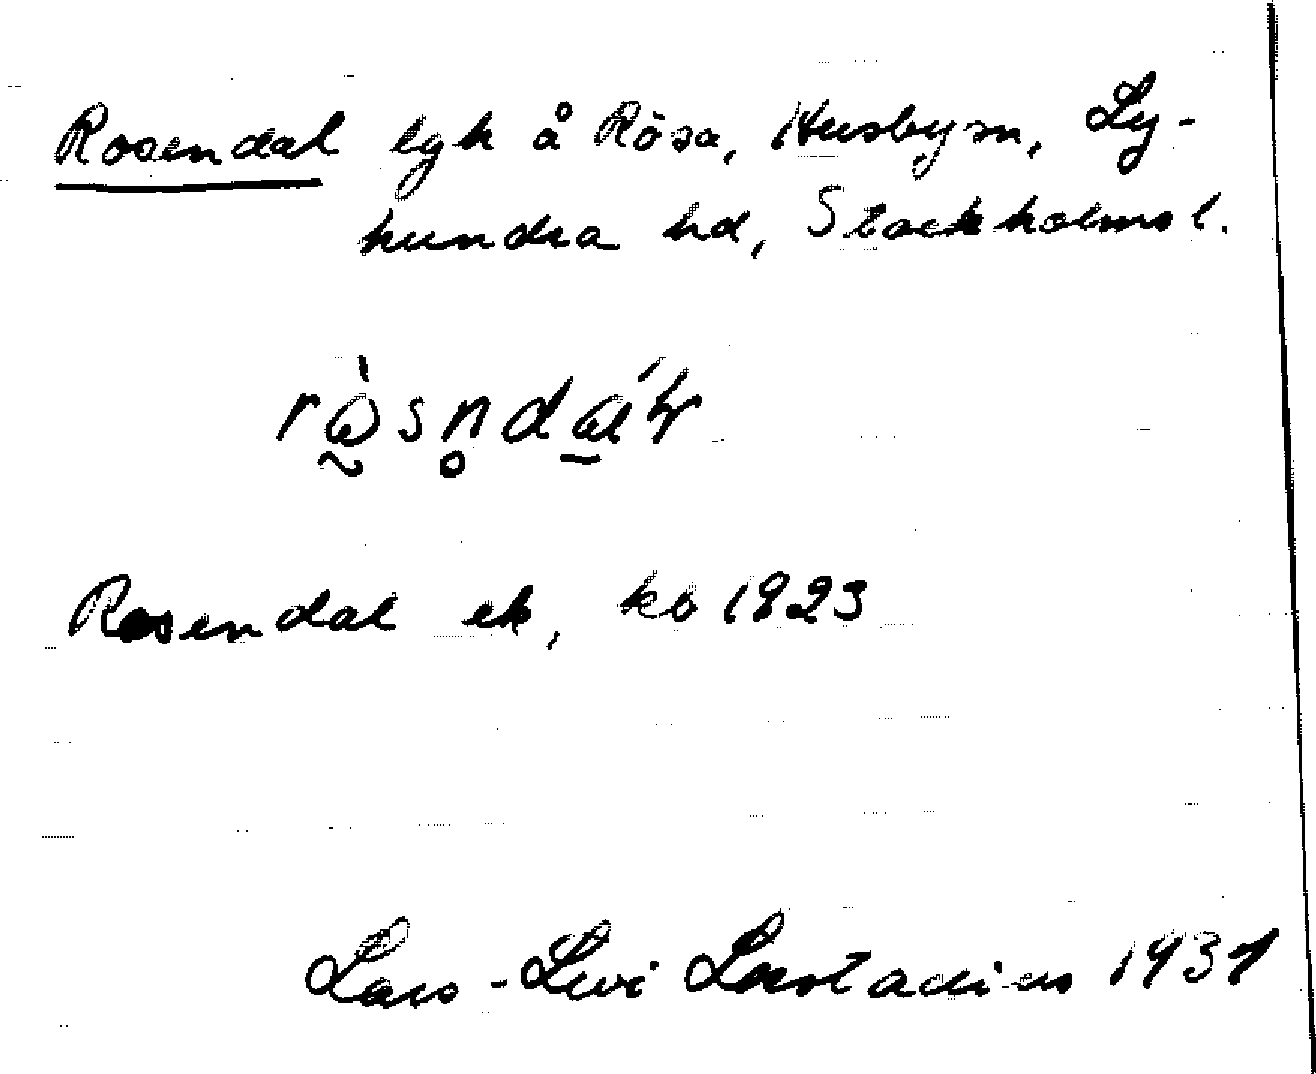 Rosendal lgh å Rösa, Husby sn, Ly-
hundra hd, Stockholms l.
Rosendal ek, kb 1823
Lars-Levi Læstadius 1937